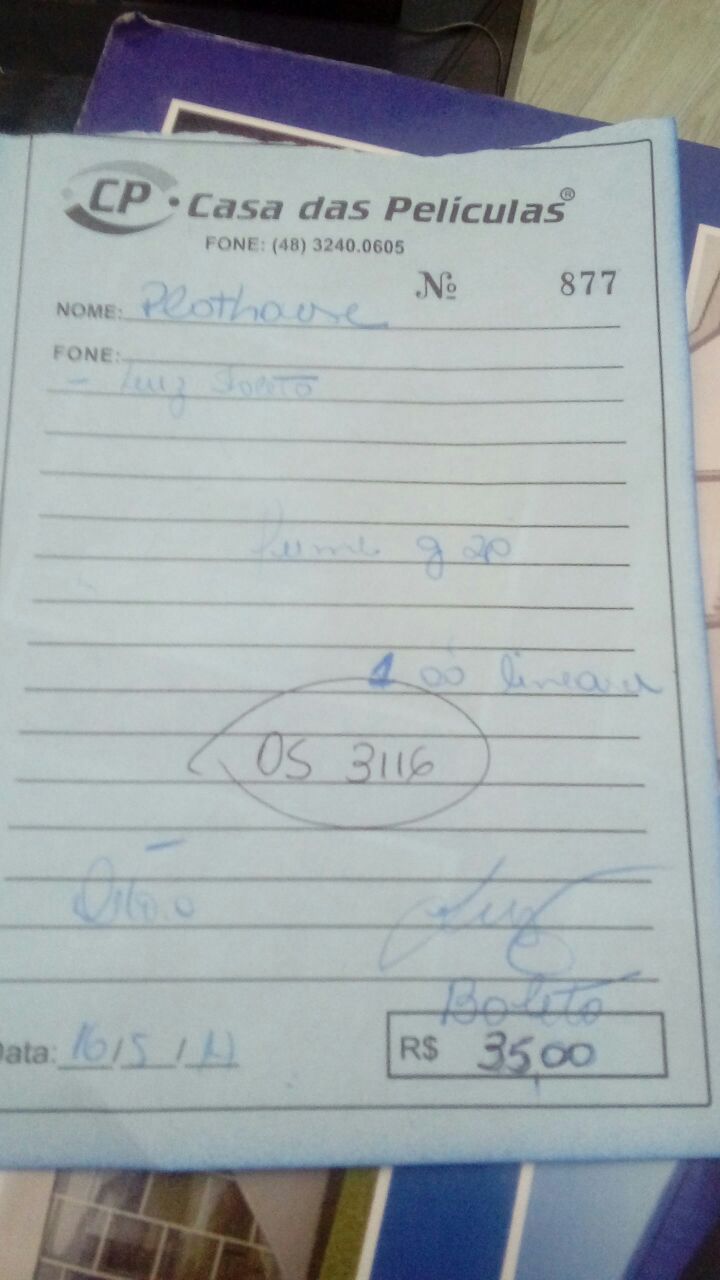 CP • Casa das Películas®
FONE: (48) 3240.0605
Nº 877
NOME: Plothouse
FONE:
- Luiz
g 20
1 00 linear
OS 3116
Boleto
Data: 16/5/
R$ 35,00